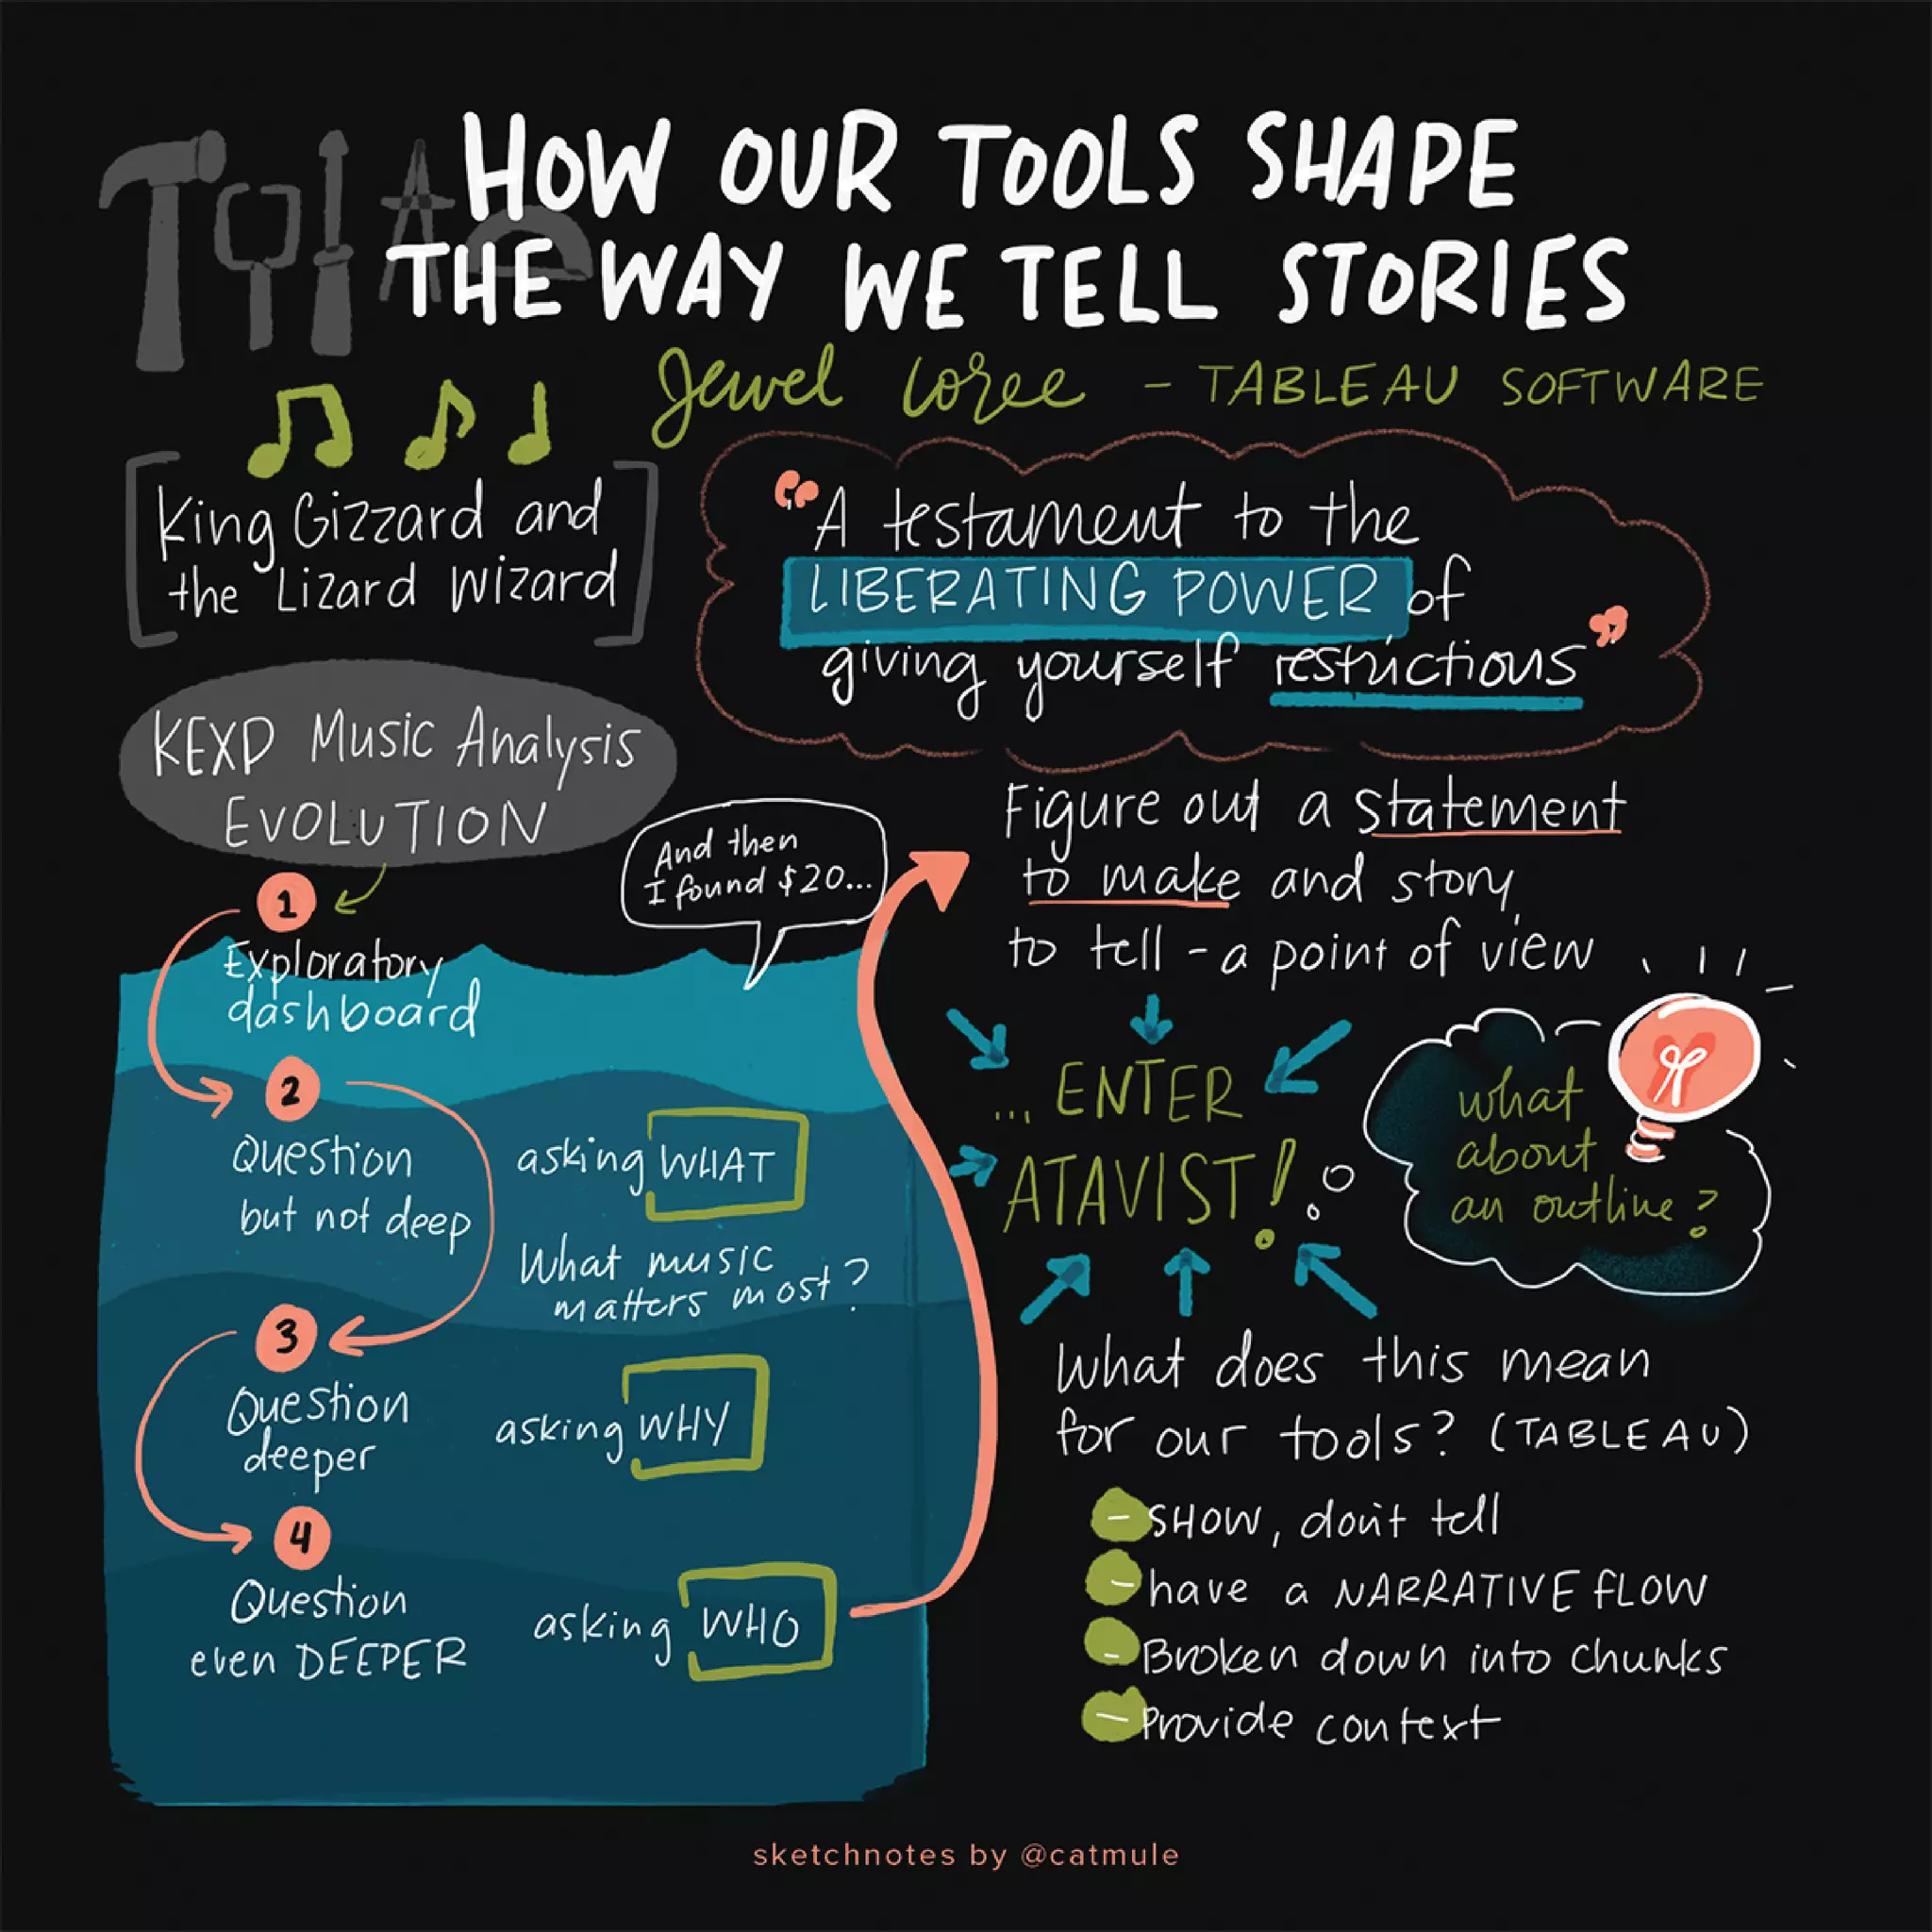 HOW OUR TOOLS SHAPE
THE WAY WE TELL STORIES
Jewel Loree - TABLEAU SOFTWARE
King Gizzard and
the Lizard Wizard
"A testament to the
LIBERATING POWER of
giving yourself restrictions"
KEXP Music Analysis
EVOLUTION
And then
I found $20...
1
Exploratory
dashboard
2
Question
but not deep
asking WHAT
What music
matters most?
3
Question
deeper
asking WHY
4
Question
even DEEPER
asking WHO
Figure out a statement
to make and story
to tell - a point of view
... ENTER
ATAVIST!
what
about
an outline?
What does this mean
for our tools? (TABLEAU)
- SHOW, don't tell
- have a NARRATIVE FLOW
- Broken down into chunks
- Provide context
sketchnotes by @catmule